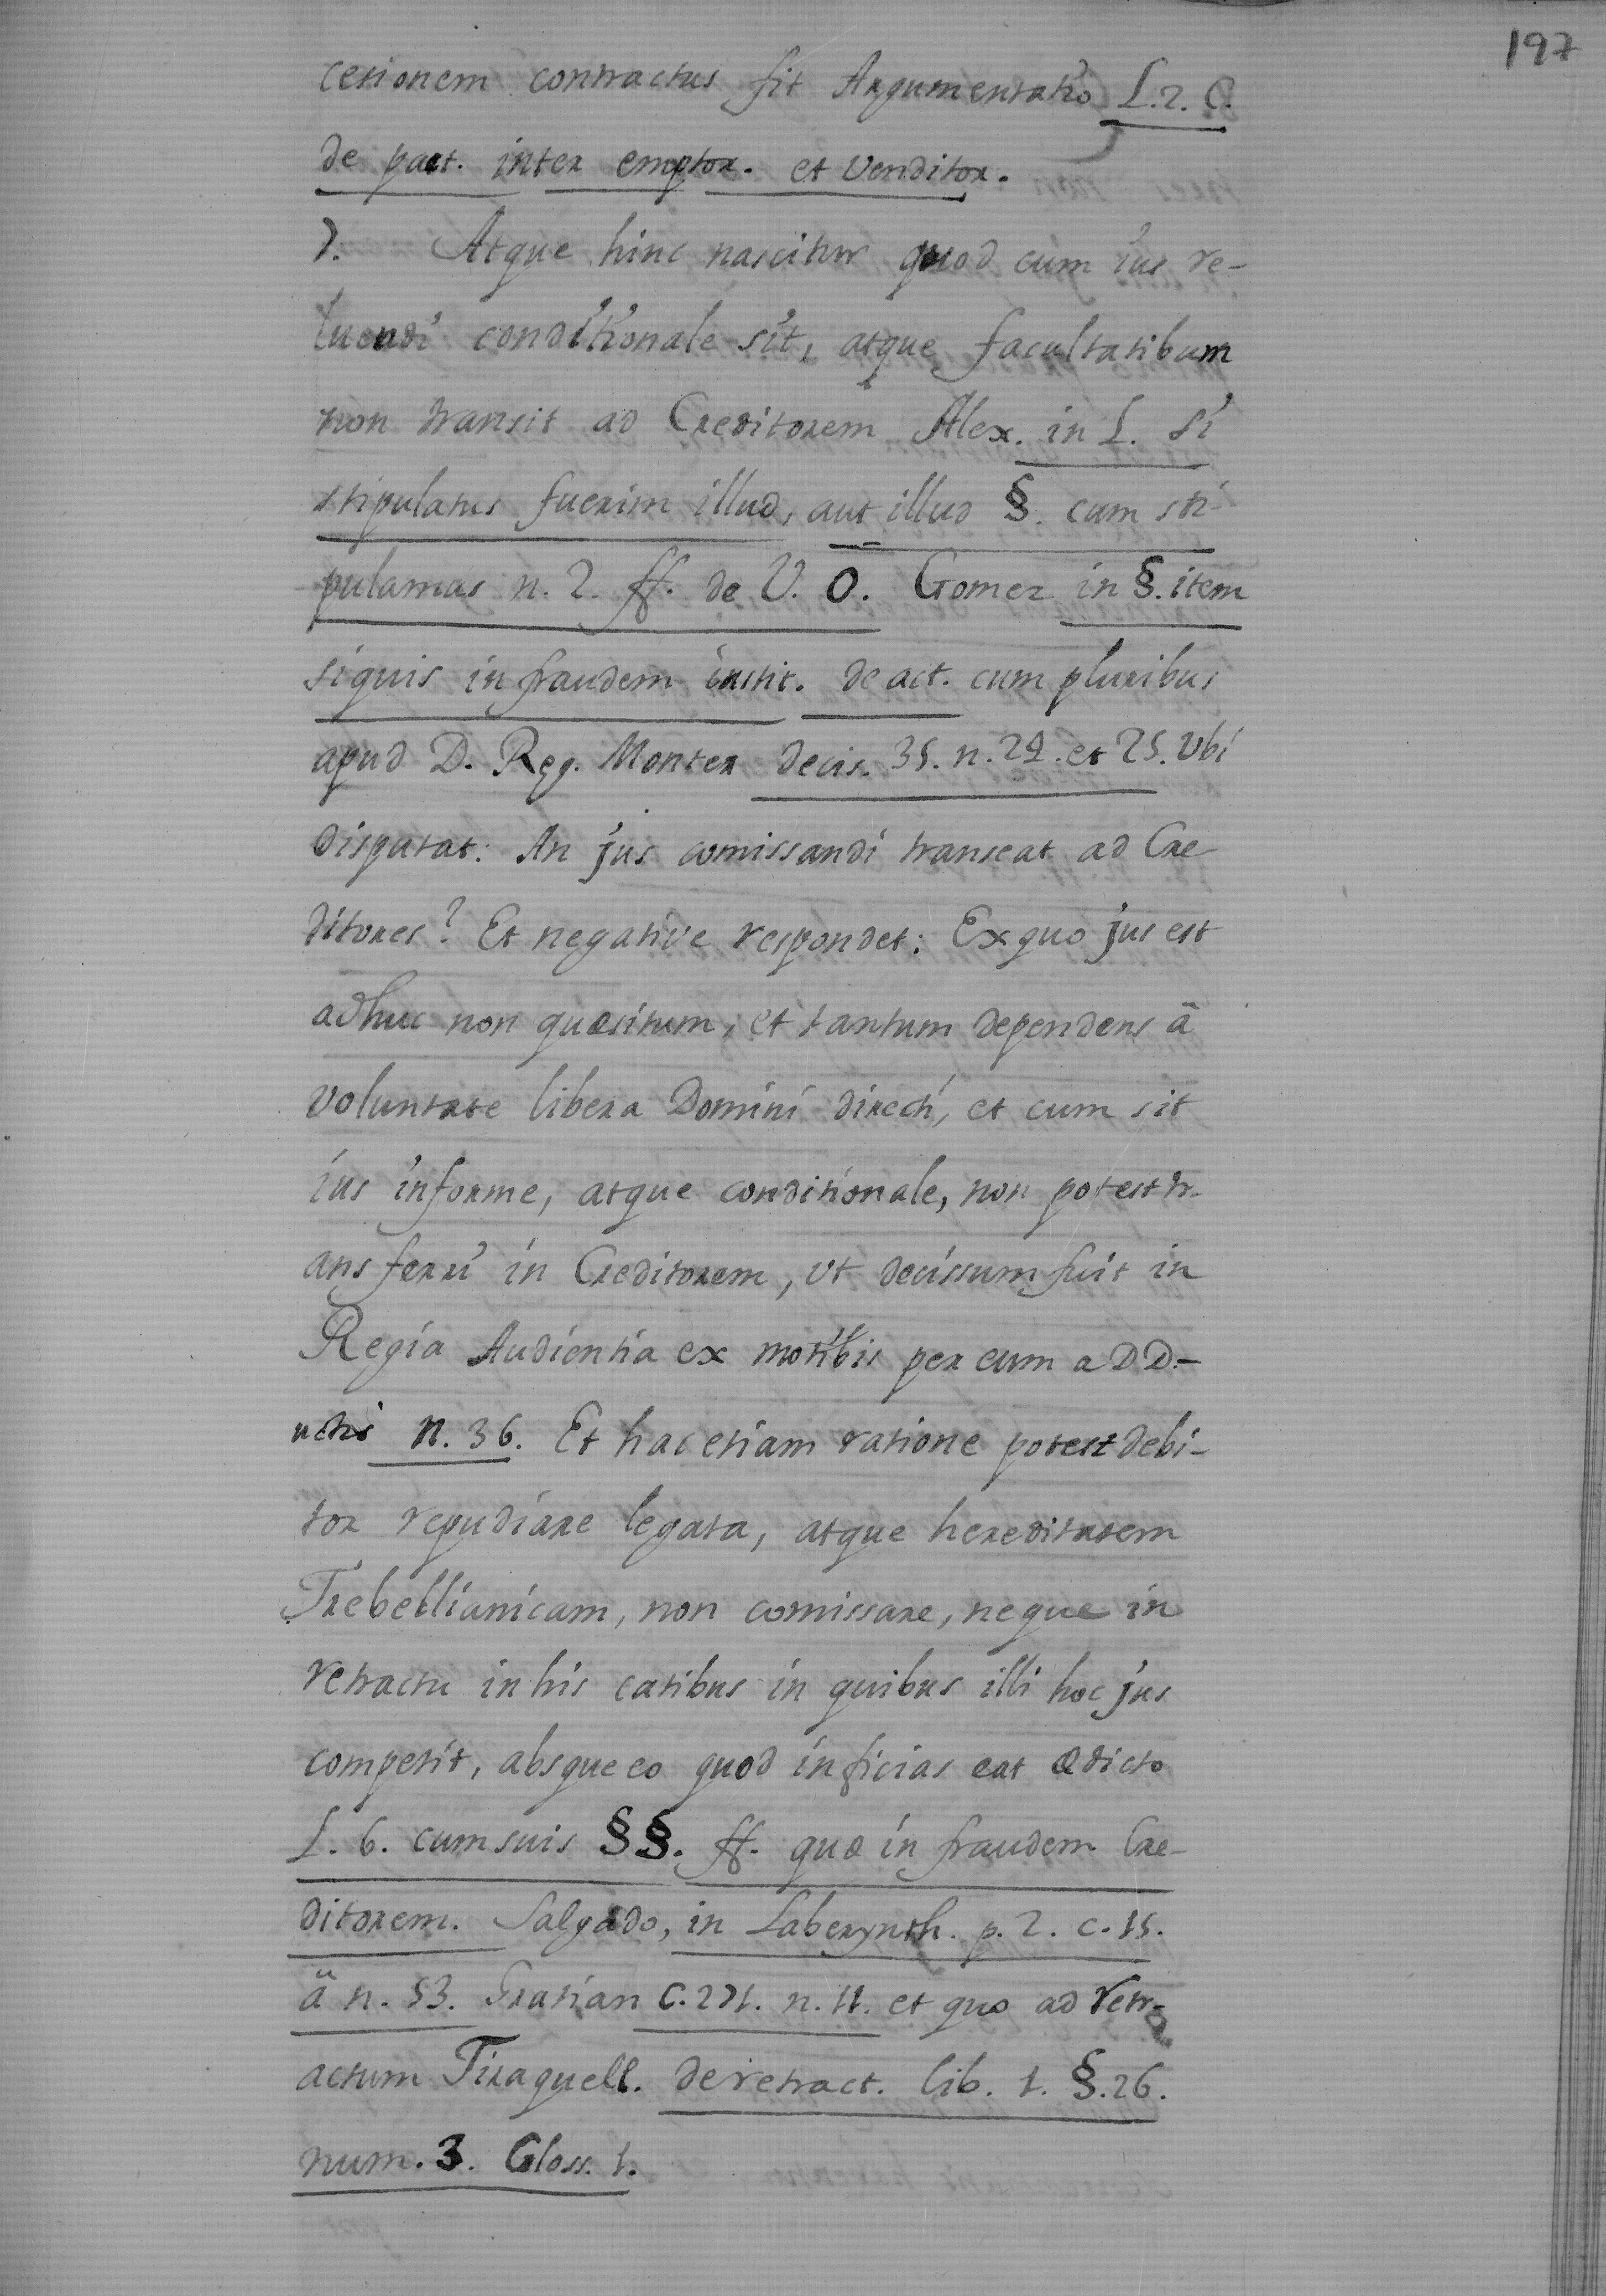 197
cetionem contractus fit Argumentatio L. 2. C.
de pact. inter emptor. et Venditor.
7. Atque hinc nascitur quod cum ius re-
luendi conditionale sit, atque facultatibum
non transit ad Creditorem Alex. in L. Si
stipulatus fuerim illud, aut illud §. cum sti-
pulamas n. 2. ff. de V. O. Gomez in §. item
siquis in fraudem instit. de act. cum pluribus
apud D. Reg. Monter decis. 35. n. 24. et 25. Vbi
disputat: An jus comissandi transeat ad Cre
ditores? Et negative respondet: Ex quo jus est
adhuc non quæsitum, et tantum dependens â
voluntate libera Domini directi, et cum sit
ius informe, atque conditionale, non potest tr-
ansferri in Creditorem, Vt decissum fuit in
Regia Audientia ex motibis per eum a DD.-
uctis n. 36. Et hac etiam ratione potest debi-
tor repudiare legata, atque hereditatem
Trebellianicam, non comissare, neque in
retractu in his catibus in quibus illi hoc jus
competit, absque eo quod inficias eat ædicto
L. 6. cum suis §§. ff. quæ in fraudem Cre-
ditorem. Salgado, in Laberynth. p. 2. c. 15.
â n. 53. Gratian C. 271. n. 11. et quo ad retr-
actum Tiraquell. de retract. lib. 1. §. 26.
num. 3. Gloss. 1.